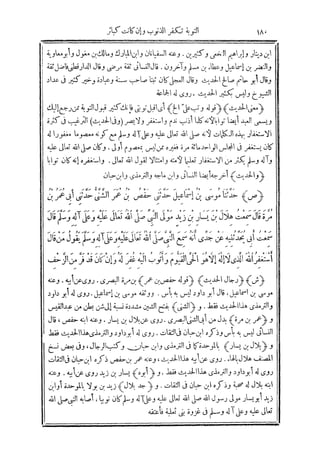 ١٨٠ التوبة تكفر الذنوب وإن كانت كبائر
ابن دينار وإبراهيم النخعى وكثيرين. وعنه السفيانان وابن المبارك ومالك بن مغول وأبو معاوية
والنضر بن إسماعيل وعطاء بن مسلم وآخرون. قال النسائى ثقة مرضى وقال الدارقطنى فاضل ثقة
وقال أبو حاتم صالح الحديث. وقال العجلى كان ثبتا صاحب سنة وعبادة وخير كثير فى عداد
الشيوخ وليس بكثير الحديث. روى له الجماعة
﴿معنى الحديث﴾ ﴿قوله وتب علىّ الخ﴾ أى اقبل توبتى فإنك كثير قبول التوبة ممن رجع إليك
ويسمى العبد أيضا توابا لأنه كلما أذنب ندم واستغفر ولا يصر ﴿وفى الحديث﴾ الترغيب فى كثرة
الاستغفار بهذه الكلمات لأنه صلى الله تعالى عليه وعلى آله وسلم مع كونه معصوما مغفورا له
كان يستغفر فى المجلس الواحد مائة مرة فغيره ممن ليس بمعصوم أولى. وكان صلى الله تعالى عليه
وعلى آله وسلم يكثر من الاستغفار تعليما لأمته وامتثالا لقول الله تعالى. واستغفره إنه كان توابا
﴿والحديث﴾ أخرجه أيضا النسائى وابن ماجه والترمذى وابن حبان
﴿ص﴾ حَدَّثَنَا مُوسَى بْنُ إِسْمَاعِيلَ حَدَّثَنِى حَفْصُ بْنُ عُمَرَ الشَّنِّىُّ حَدَّثَنِى أَبِى عُمَرُ بْنُ
مُرَّةَ قَالَ سَمِعْتُ هِلَالَ بْنَ يَسَارِ بْنِ زَيْدٍ مَوْلَى النَّبِىِّ صَلَّى اللهُ تَعَالَى عَلَيْهِ وَعَلَى آلِهِ وَسَلَّمَ قَالَ
سَمِعْتُ أَبِى يُحَدِّثُنِيهِ عَنْ جَدِّى أَنَّهُ سَمِعَ النَّبِىَّ صَلَّى اللهُ تَعَالَى عَلَيْهِ وَعَلَى آلِهِ وَسَلَّمَ يَقُولُ مَنْ قَالَ
أَسْتَغْفِرُ اللهَ الَّذِى لَا إِلَهَ إِلَّا هُوَ الْحَىُّ الْقَيُّومُ وَأَتُوبُ إِلَيْهِ غُفِرَ لَهُ وَإِنْ كَانَ قَدْ فَرَّ مِنَ الزَّحْفِ
﴿ش﴾ ﴿رجال الحديث﴾ ﴿قوله حفص بن عمر﴾ بن مرة البصرى. روى عن أبيه. وعنه
موسى بن إسماعيل. قال أبو داود ليس به بأس. ووثقه موسى بن إسماعيل. روى له أبو داود
والترمذى هذا الحديث فقط. و﴿الشنى﴾ بفتح الشين مشددة نسبة إلى شن بطن من عبد القيس
و﴿عمر بن مرة﴾ بدل من أبى الشنى البصرى. روى عن بلال بن يسار. وعنه ابنه حفص، قال
النسائى ليس به بأس وذكره ابن حبان فى الثقات. روى له أبو داود والترمذى هذا الحديث فقط
و﴿بلال بن يسار﴾ بالموحدة كما فى الترمذى وابن حبان وكتب الرجال. وفى بعض نسخ
المصنف هلال بالهاء. روى عن أبيه هذا الحديث، وعنه عمر بن حفص ذكره ابن حبان فى الثقات
روى له أبو داود والترمذى هذا الحديث فقط. و﴿أبوه﴾ يسار بن زيد روى عن أبيه. وعنه
ابنه بلال له صحبة وذكره ابن حبان فى الثقات. و﴿جد بلال﴾ زيد بن بولا بالموحدة أو ابن
زيد أبو يسار مولى رسول الله صلى الله تعالى عليه وعلى آله وسلم كان نوبيا، أصابه النبى صلى الله
تعالى عليه وعلى آله وسلم فى غزوة بنى ثعلبة فأعتقه